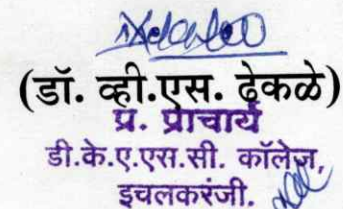 (डॉ. व्ही.एस. ढेकळे)
प्र. प्राचार्य
डी.के.ए.एस.सी. कॉलेज,
इचलकरंजी.